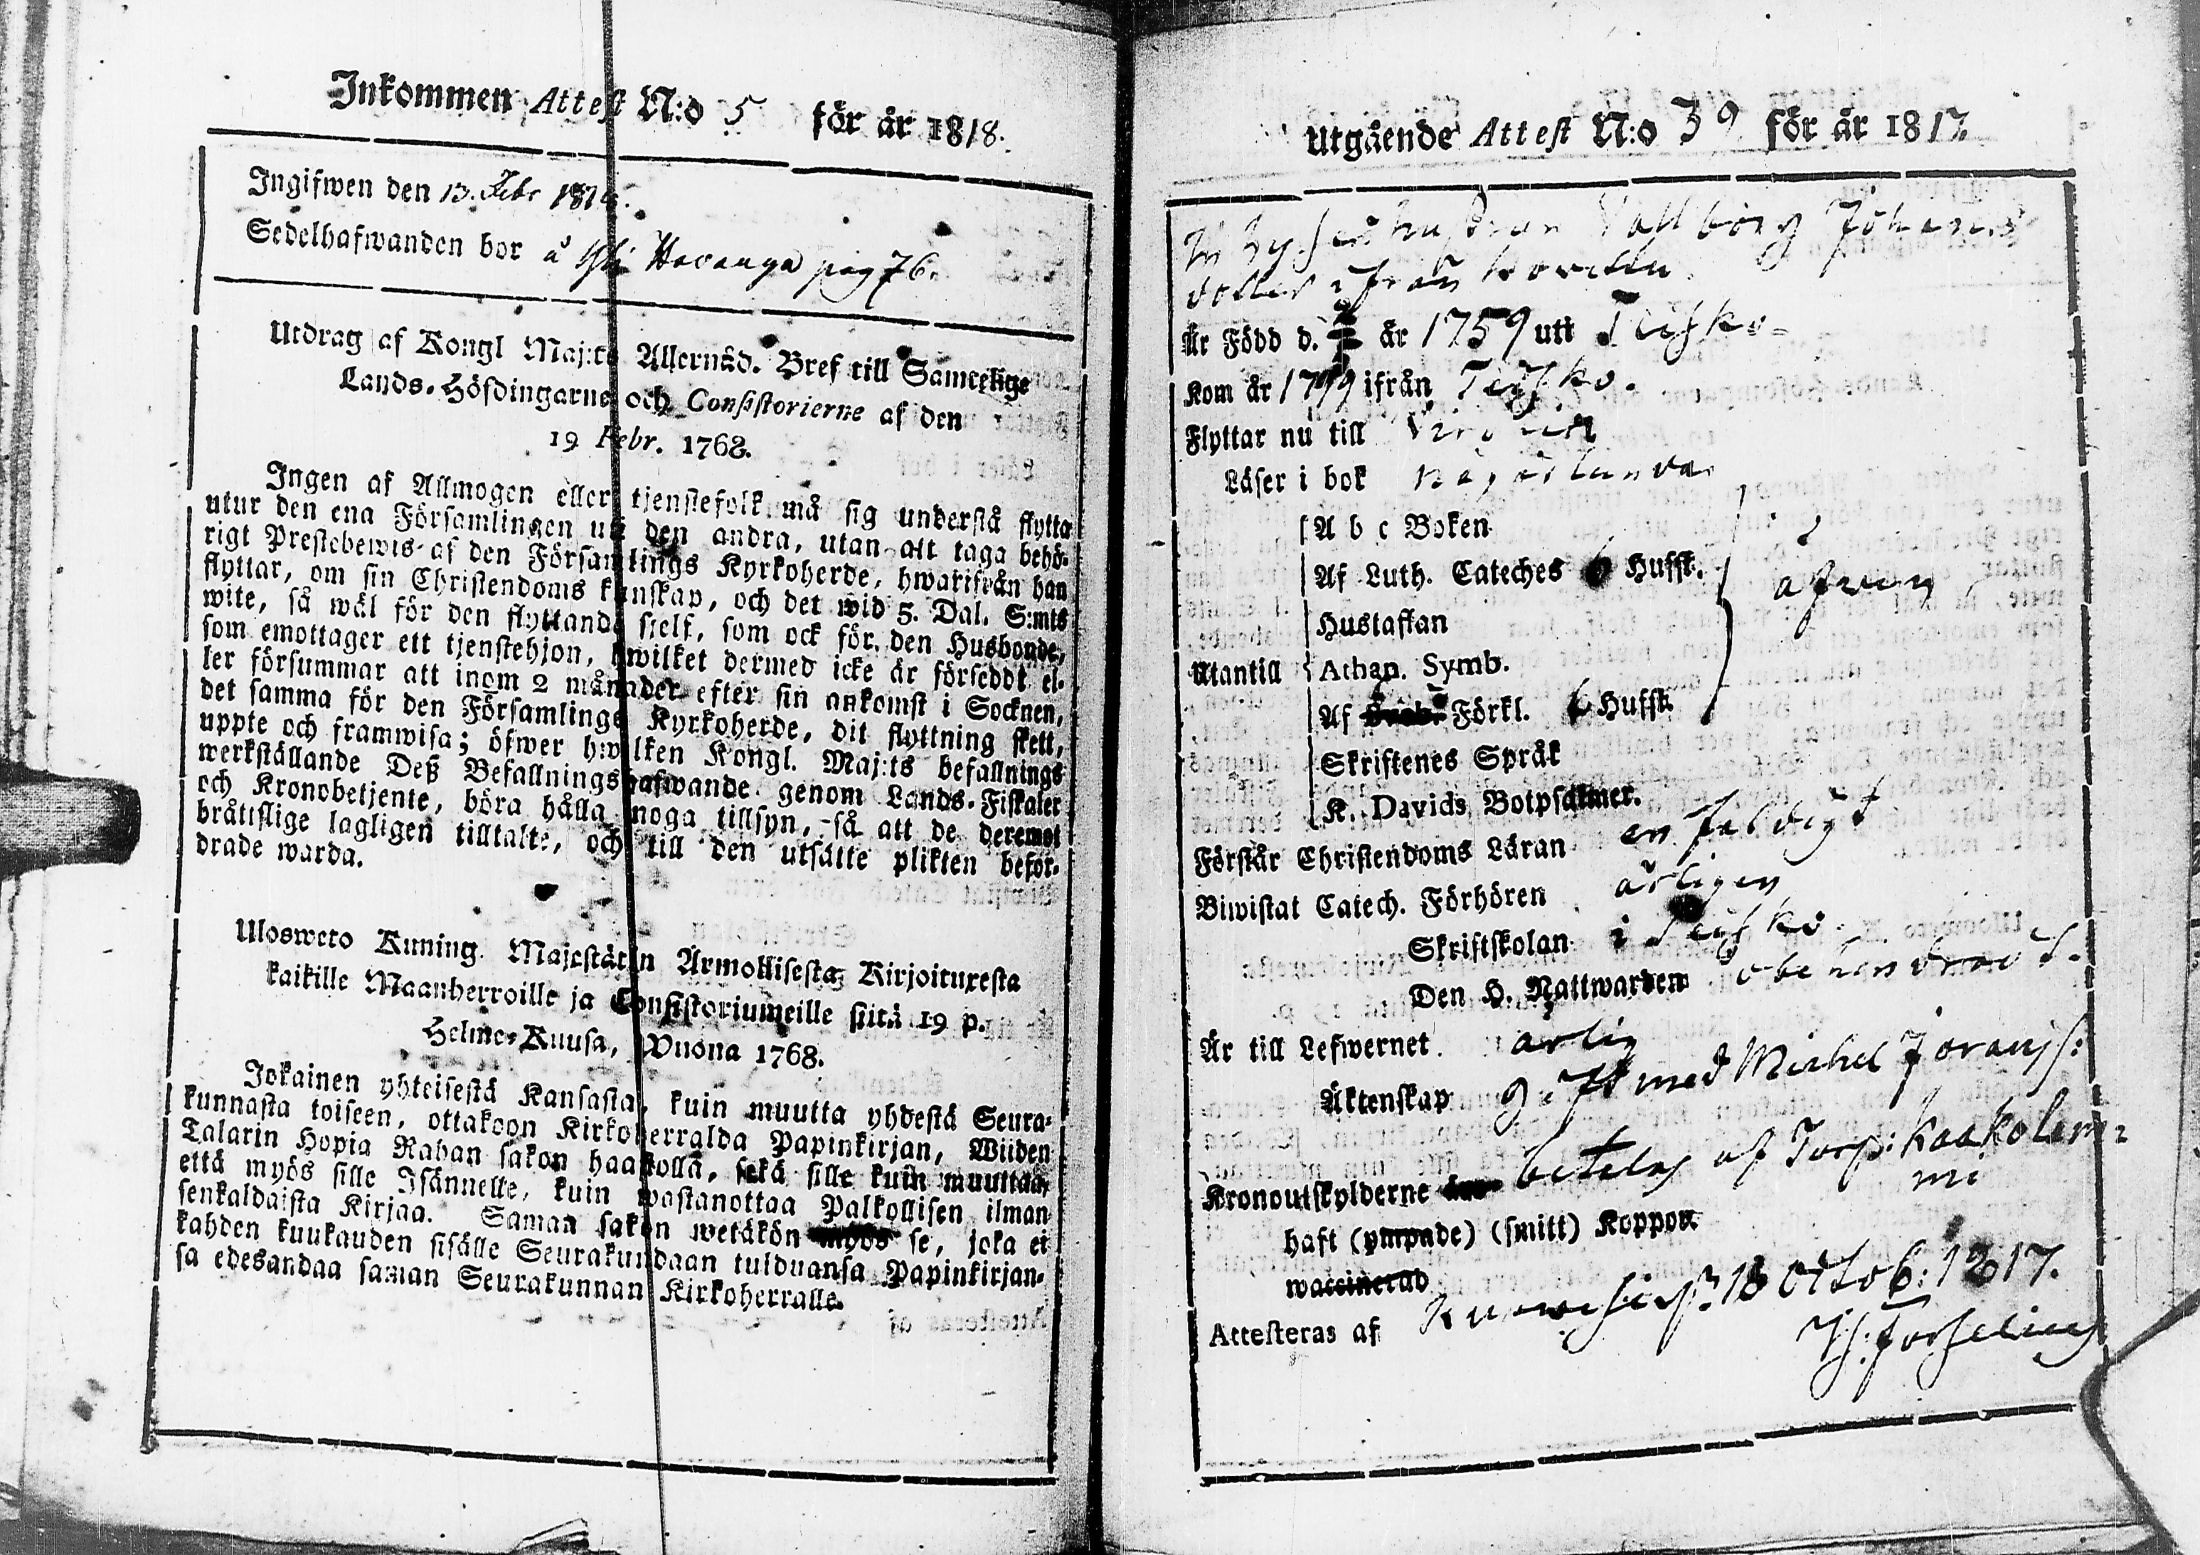 Inkommen Attest N:o 5 för år 1818.
Ingifwen den 13. Febr 1818.
Sedelhafwanden bor å Havanga pag 76.
Utdrag af Kongl Maj:ts Allernåd. Bref till Samtelige
Lands-Höfdingarne och Consistorierne af den
19 Febr. 1768.
Ingen af Allmogen eller tjenstefolk må sig understå flytta
utur den ena Församlingen uti den andra, utan att taga behö-
rigt Prestebewis af den Församlings Kyrkoherde, hwarifrån han
flyttar, om sin Christendoms kunskap, och det wid 5. Dal. S:mts
wite, så wäl för den flyttande sielf, som ock för den Husbonde,
som emottager ett tjenstehjon, hwilket dermed icke är försedt el-
ler försummar att inom 2 månader efter sin ankomst i Socknen,
det samma för den Församlings Kyrkoherde, dit flyttning skett,
uppte och framwisa; öfwer hwilken Kongl. Maj:ts befallnings
werkställande Deß Befallningshafwande genom Lands-Fiskaler
och Kronobetjente, böra hålla noga tillsyn, så att de deremot
bråttslige lagligen tilltalte, och till den utsatte plikten befor-
drade warda.
Ulosweto Kuning. Majestätin Armollisesta Kirjoituxesta
kaikille Maanherroille ja Consistoriumeille siitä 19 p.
Helme-Kuusa, Wuona 1768.
Jokainen yhteisestä Kansasta, kuin muutta yhdestä Seura-
kunnasta toiseen, ottakoon Kirkoherralda Papinkirjan, Wiiden
Talarin Hopia Rahan sakon haastolla, sekä sille kuin muuttaa,
että myös sille Isännelle, kuin wastanottaa Palkollisen ilman
senkaldaista Kirjaa. Saman sakon wetäkön myös se, joka ei
kahden kuukauden sisälle Seurakundaan tulduansa Papinkirjan-
sa edesandaa saman Seurakunnan Kirkoherralle.
Utgående Attest N:o 39 för år 1817.
hustrun Vallborg Johans
dotter ifrån
Är Född d. år 1759 uti Teisko
Kom år 1799 ifrån Teisko.
Flyttar nu till
Läser i bok någorlunda
A b c Boken
Af Luth. Cateches 6 Hufst.
äfwen
Hustaflan
Utantill Athan. Symb.
Af Förkl. 6 Hufst.
Skriftenes Språk
K. Davids Botpsalmer.
Förstår Christendoms Läran enfaldigt
Biwistat Catech. Förhören årligen
Skriftskolan i Teisko.
Den H. Nattwarden obehindrad
Är till Lefwernet ärlig
Äktenskap gift med Michel Joransf:
Kronoutskylderne betalas af Torp: Kaakolam:
mi
haft (ympade) (smitt) Koppor
waccinerad
Attesteras af 18 Octob: 1817.